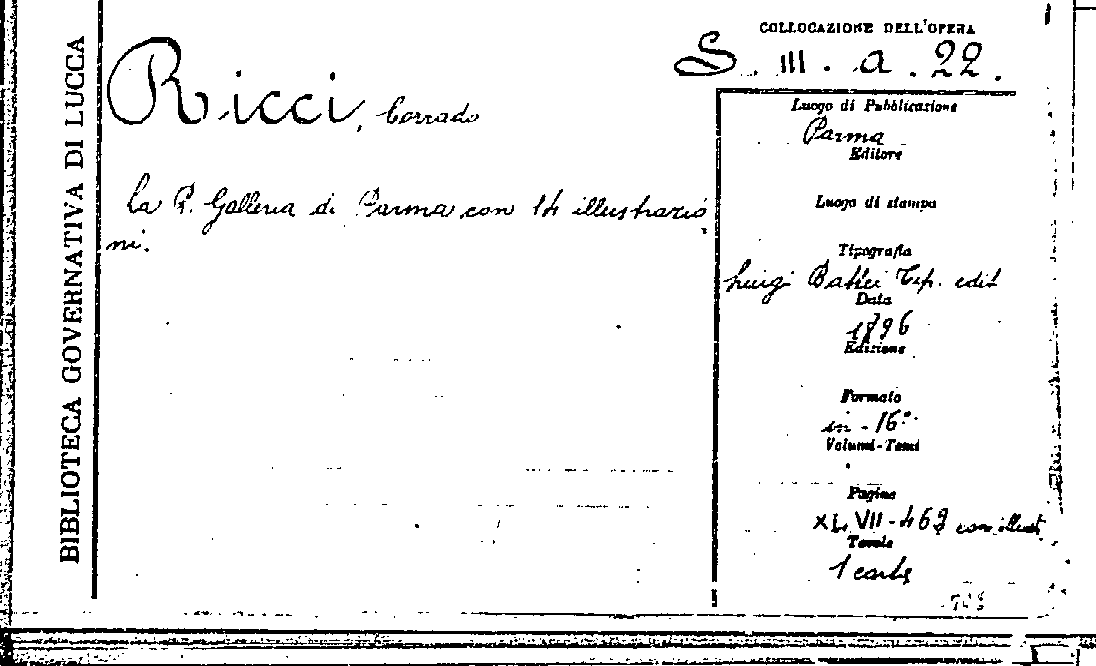 BIBLIOTECA GOVERNATIVA DI LUCCA
COLLOCAZIONE DELL'OPERA
S. III. a. 22.
Ricci, Corrado
La R. Galleria di Parma con 14 illustrazio
ni.
Luogo di Pubblicazione
Parma
Editore
Luogo di stampa
Tipografia
Luigi Battei Tip. edit
Data
1896
Edizione
Formato
in-16°
Volumi-Tomi
Pagine
XLVII-469 con illust.
Tavole
1 carta